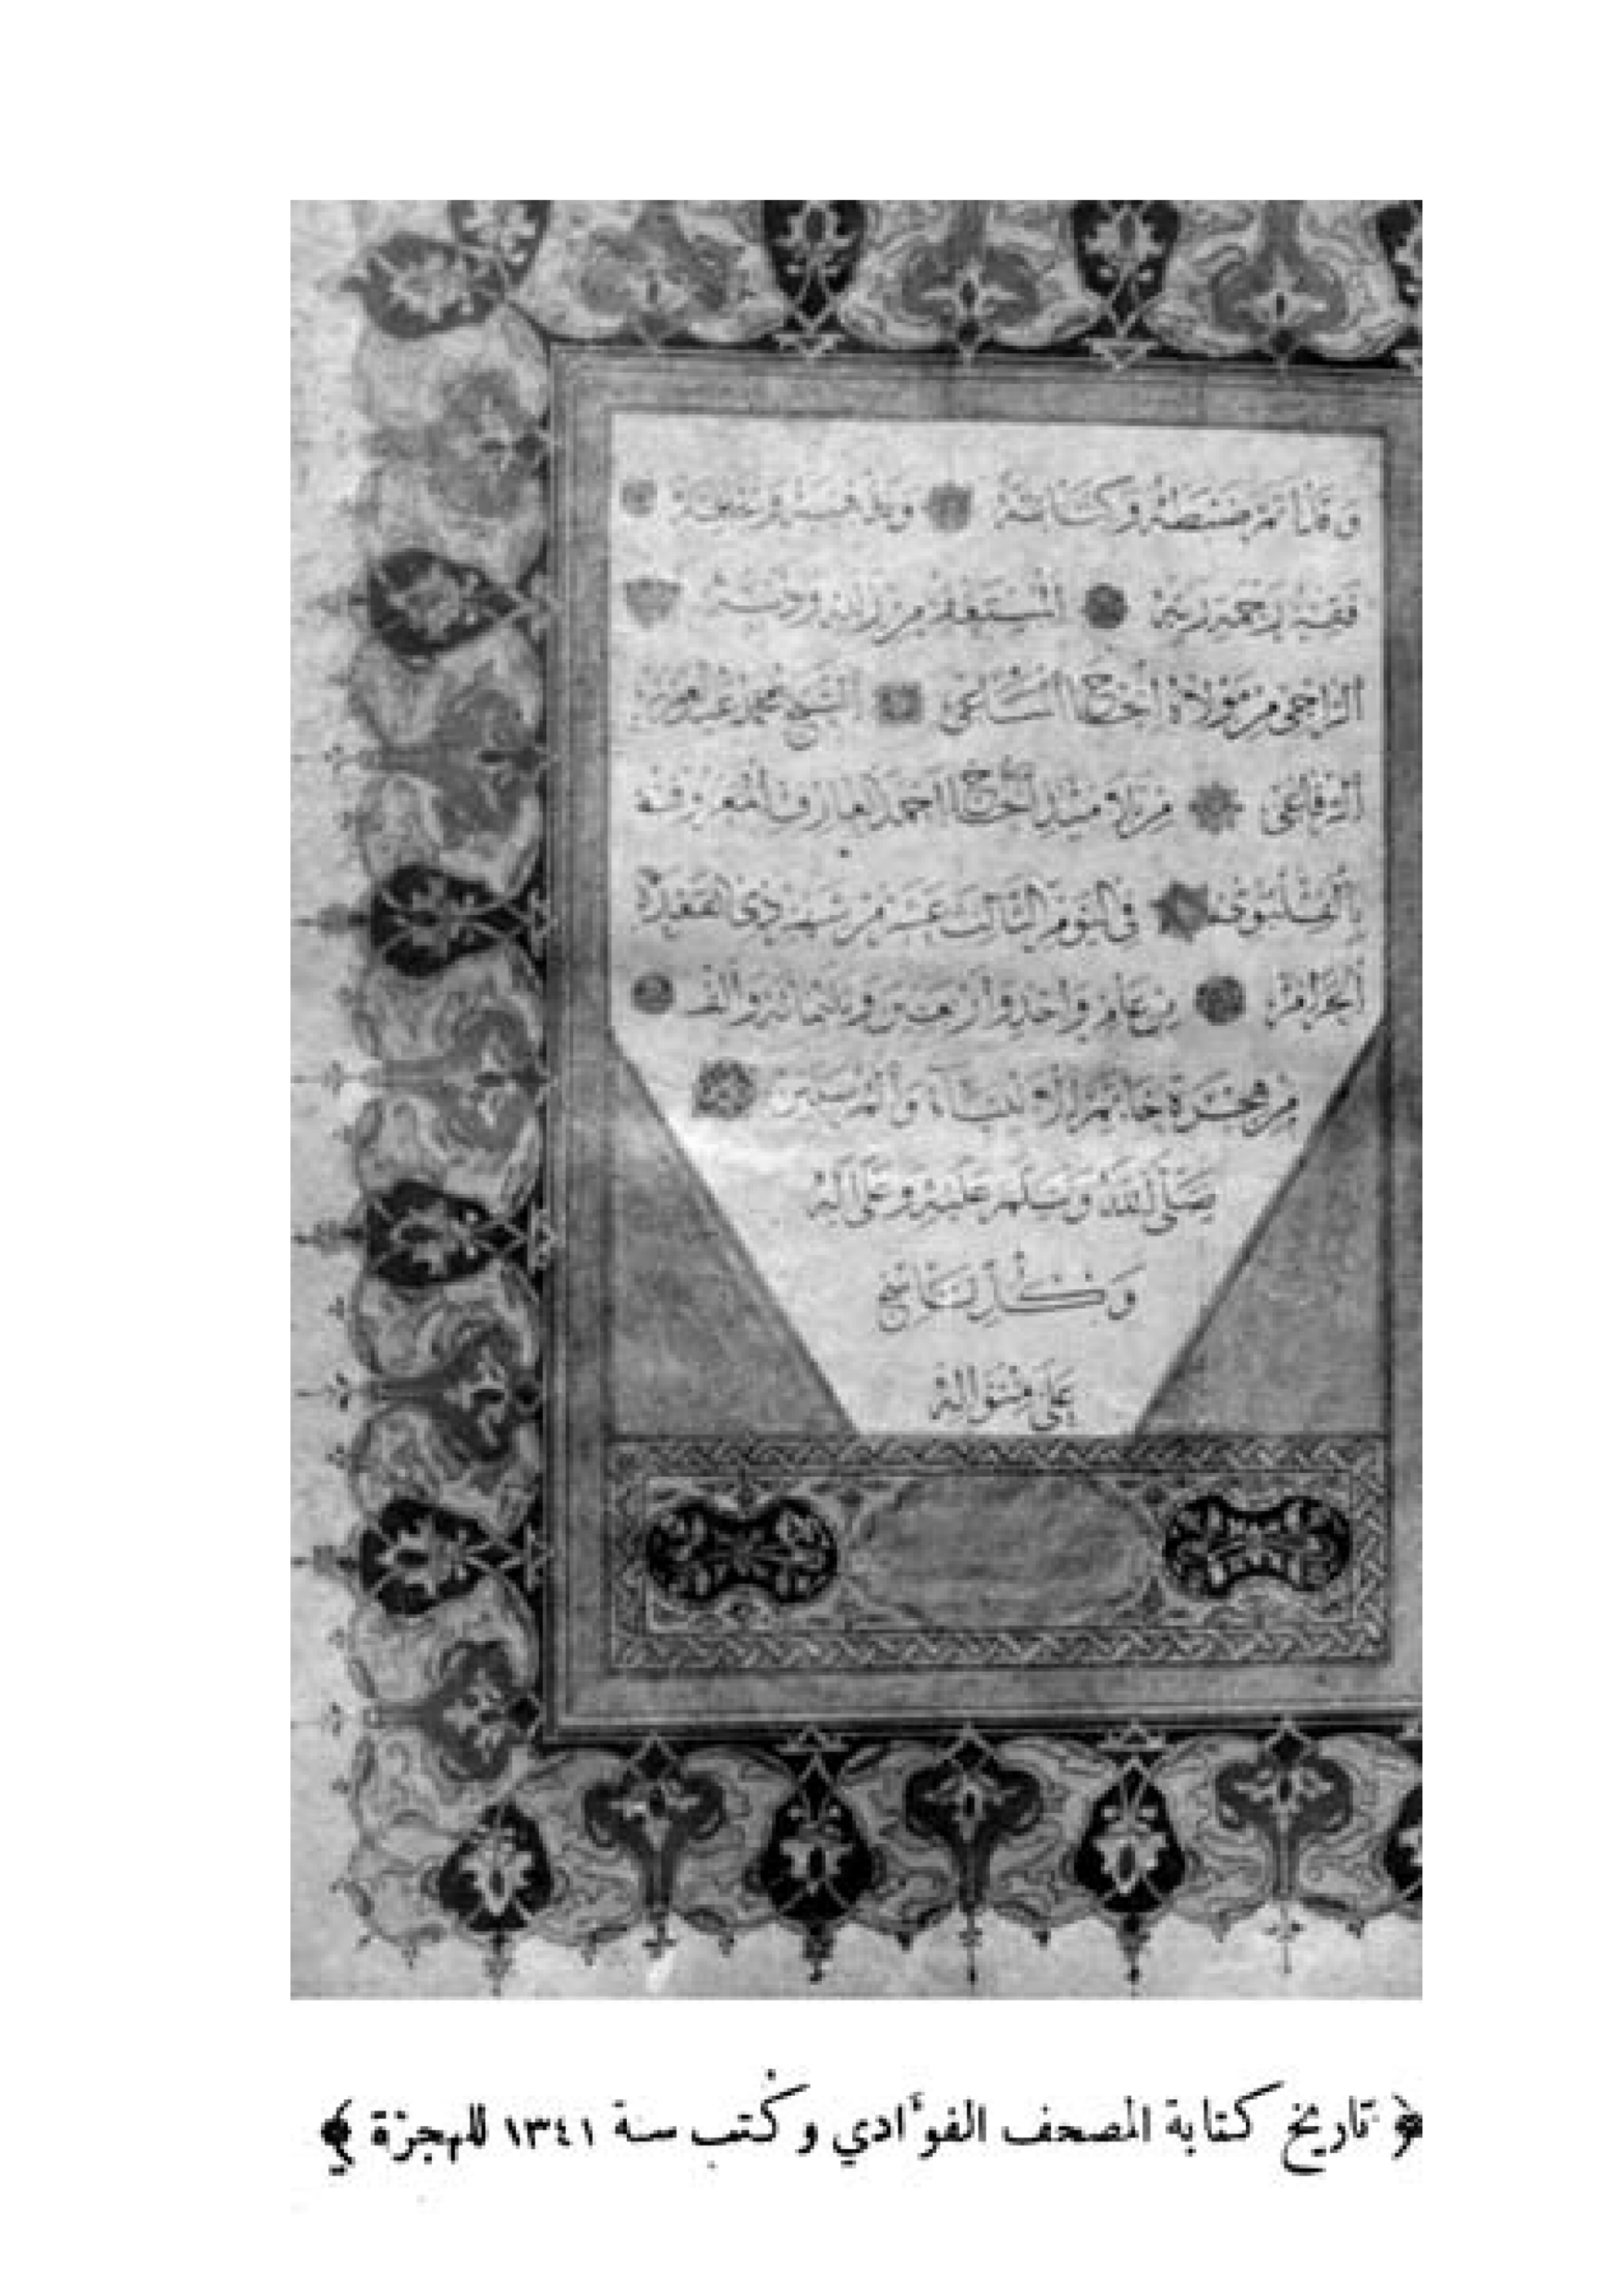 وَقَدْ تَمَّ ضَبْطُهُ وَكِتَابَتُهُ وَتَذْهِيبُهُ
فَقِيرُ رَحْمَةِ رَبِّهِ الْمُسْتَغْفِرُ مِنْ زَلَلِهِ وَذَنْبِهِ
الرَّاجِي مِنْ مَوْلَاهُ الشَّيْخُ مُحَمَّدْ عَبْدُ الْعَزِيزِ
الرِّفَاعِي مِنْ تَلَامِيذِ الْحَاجِّ أَحْمَدَ الْعَارِفِ الْمَعْرُوفِ
بِالْفِلِبَوِي فِي الْيَوْمِ الثَّالِثَ عَشَرَ مِنْ شَهْرِ ذِي الْقَعْدَةِ
الْحَرَامِ مِنْ عَامِ وَاحِدٍ وَأَرْبَعِينَ وَثَلَثِمِائَةٍ وَأَلْفٍ
مِنْ هِجْرَةِ خَاتَمِ الْأَنْبِيَاءِ وَالْمُرْسَلِينَ
صَلَّى اللهُ وَسَلَّمَ عَلَيْهِ وَعَلَى آلِهِ
وَكُلِّ نَاسِجٍ
عَلَى مِنْوَالِهِ
﴿ تاريخ كتابة المصحف الفؤادي وكُتب سنة ١٣٤١ للهجرة ﴾